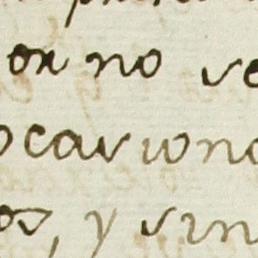 or no ve
ocasiono
os, y sin